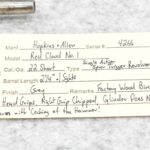 Manf. Hopkins & Allen Serial # 4266
Model Red Cloud No. 1
Cal./Ga. 22 Short Single Action Spur Trigger Revolver
Barrel Length 2 3/4"
Finish Gray Remarks: Factory Wood Bird
Head Grips, Right Grip Chipped, Cylinder Does N
with "Cocking of the Hammer"